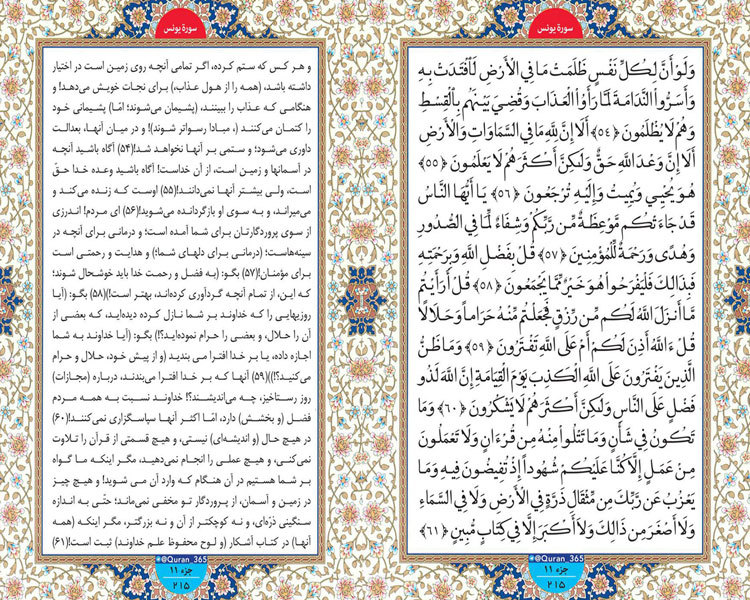 سورة یونس
وَلَوْ أَنَّ لِكُلِّ نَفْسٍ ظَلَمَتْ مَا فِي الْأَرْضِ لَافْتَدَتْ بِهِ
وَأَسَرُّوا النَّدَامَةَ لَمَّا رَأَوُا الْعَذَابَ وَقُضِيَ بَيْنَهُمْ بِالْقِسْطِ
وَهُمْ لَا يُظْلَمُونَ ﴿٥٤﴾ أَلَا إِنَّ لِلَّهِ مَا فِي السَّمَاوَاتِ وَالْأَرْضِ
أَلَا إِنَّ وَعْدَ اللَّهِ حَقٌّ وَلَكِنَّ أَكْثَرَهُمْ لَا يَعْلَمُونَ ﴿٥٥﴾
هُوَ يُحْيِي وَيُمِيتُ وَإِلَيْهِ تُرْجَعُونَ ﴿٥٦﴾ يَا أَيُّهَا النَّاسُ
قَدْ جَاءَتْكُمْ مَوْعِظَةٌ مِّن رَّبِّكُمْ وَشِفَاءٌ لِّمَا فِي الصُّدُورِ
وَهُدًى وَرَحْمَةٌ لِّلْمُؤْمِنِينَ ﴿٥٧﴾ قُلْ بِفَضْلِ اللَّهِ وَبِرَحْمَتِهِ
فَبِذَلِكَ فَلْيَفْرَحُوا هُوَ خَيْرٌ مِّمَّا يَجْمَعُونَ ﴿٥٨﴾ قُلْ أَرَأَيْتُم
مَّا أَنزَلَ اللَّهُ لَكُم مِّن رِّزْقٍ فَجَعَلْتُم مِّنْهُ حَرَامًا وَحَلَالًا
قُلْ ءَاللَّهُ أَذِنَ لَكُمْ أَمْ عَلَى اللَّهِ تَفْتَرُونَ ﴿٥٩﴾ وَمَا ظَنُّ
الَّذِينَ يَفْتَرُونَ عَلَى اللَّهِ الْكَذِبَ يَوْمَ الْقِيَامَةِ إِنَّ اللَّهَ لَذُو
فَضْلٍ عَلَى النَّاسِ وَلَكِنَّ أَكْثَرَهُمْ لَا يَشْكُرُونَ ﴿٦٠﴾ وَمَا
تَكُونُ فِي شَأْنٍ وَمَا تَتْلُوا مِنْهُ مِن قُرْءَانٍ وَلَا تَعْمَلُونَ
مِنْ عَمَلٍ إِلَّا كُنَّا عَلَيْكُمْ شُهُودًا إِذْ تُفِيضُونَ فِيهِ وَمَا
يَعْزُبُ عَن رَّبِّكَ مِن مِّثْقَالِ ذَرَّةٍ فِي الْأَرْضِ وَلَا فِي السَّمَاءِ
وَلَا أَصْغَرَ مِن ذَالِكَ وَلَا أَكْبَرَ إِلَّا فِي كِتَابٍ مُّبِينٍ ﴿٦١﴾
@Quran_365
جزء ۱۱
۲۱۵
سورة یونس
و هر کس که ستم کرده، اگر تمامی آنچه روی زمین است در اختیار
داشته باشد، (همه را از هول عذاب،) برای نجات خویش می‌دهد! و
هنگامی که عذاب را ببینند، (پشیمان می‌شوند؛ امّا) پشیمانی خود
را کتمان می‌کنند (، مبادا رسواتر شوند)! و در میان آنها، بعدالت
داوری می‌شود؛ و ستمی بر آنها نخواهد شد!(۵۴) آگاه باشید آنچه
در آسمانها و زمین است، از آن خداست! آگاه باشید وعده خدا حقّ
است، ولی بیشتر آنها نمی‌دانند!(۵۵) اوست که زنده می‌کند و
می‌میراند، و به سوی او بازگردانده می‌شوید!(۵۶) ای مردم! اندرزی
از سوی پروردگارتان برای شما آمده است؛ و درمانی برای آنچه در
سینه‌هاست؛ (درمانی برای دلهای شما؛) و هدایت و رحمتی است
برای مؤمنان!(۵۷) بگو: (به فضل و رحمت خدا باید خوشحال شوند؛
که این، از تمام آنچه گردآوری کرده‌اند، بهتر است!)(۵۸) بگو: (آیا
روزیهایی را که خداوند بر شما نازل کرده دیده‌اید، که بعضی از
آن را حلال، و بعضی را حرام نموده‌اید؟!) بگو: (آیا خداوند به شما
اجازه داده، یا بر خدا افترا می بندید (و از پیش خود، حلال و حرام
می‌کنید؟!))(۵۹) آنها که بر خدا افترا می‌بندند، درباره (مجازات)
روز رستاخیز، چه می‌اندیشند؟! خداوند نسبت به همه مردم
فضل (و بخشش) دارد، امّا اکثر آنها سپاسگزاری نمی‌کنند!(۶۰)
در هیچ حال (و اندیشه‌ای) نیستی، و هیچ قسمتی از قرآن را تلاوت
نمی‌کنی، و هیچ عملی را انجام نمی‌دهید، مگر اینکه ما گواه
بر شما هستیم در آن هنگام که وارد آن می شوید! و هیچ چیز
در زمین و آسمان، از پروردگار تو مخفی نمی‌ماند؛ حتّی به اندازه
سنگینی ذرّه‌ای، و نه کوچکتر از آن و نه بزرگتر، مگر اینکه (همه
آنها) در کتاب آشکار (و لوح محفوظ علم خداوند) ثبت است!(۶۱)
@Quran_365
جزء ۱۱
۲۱۵